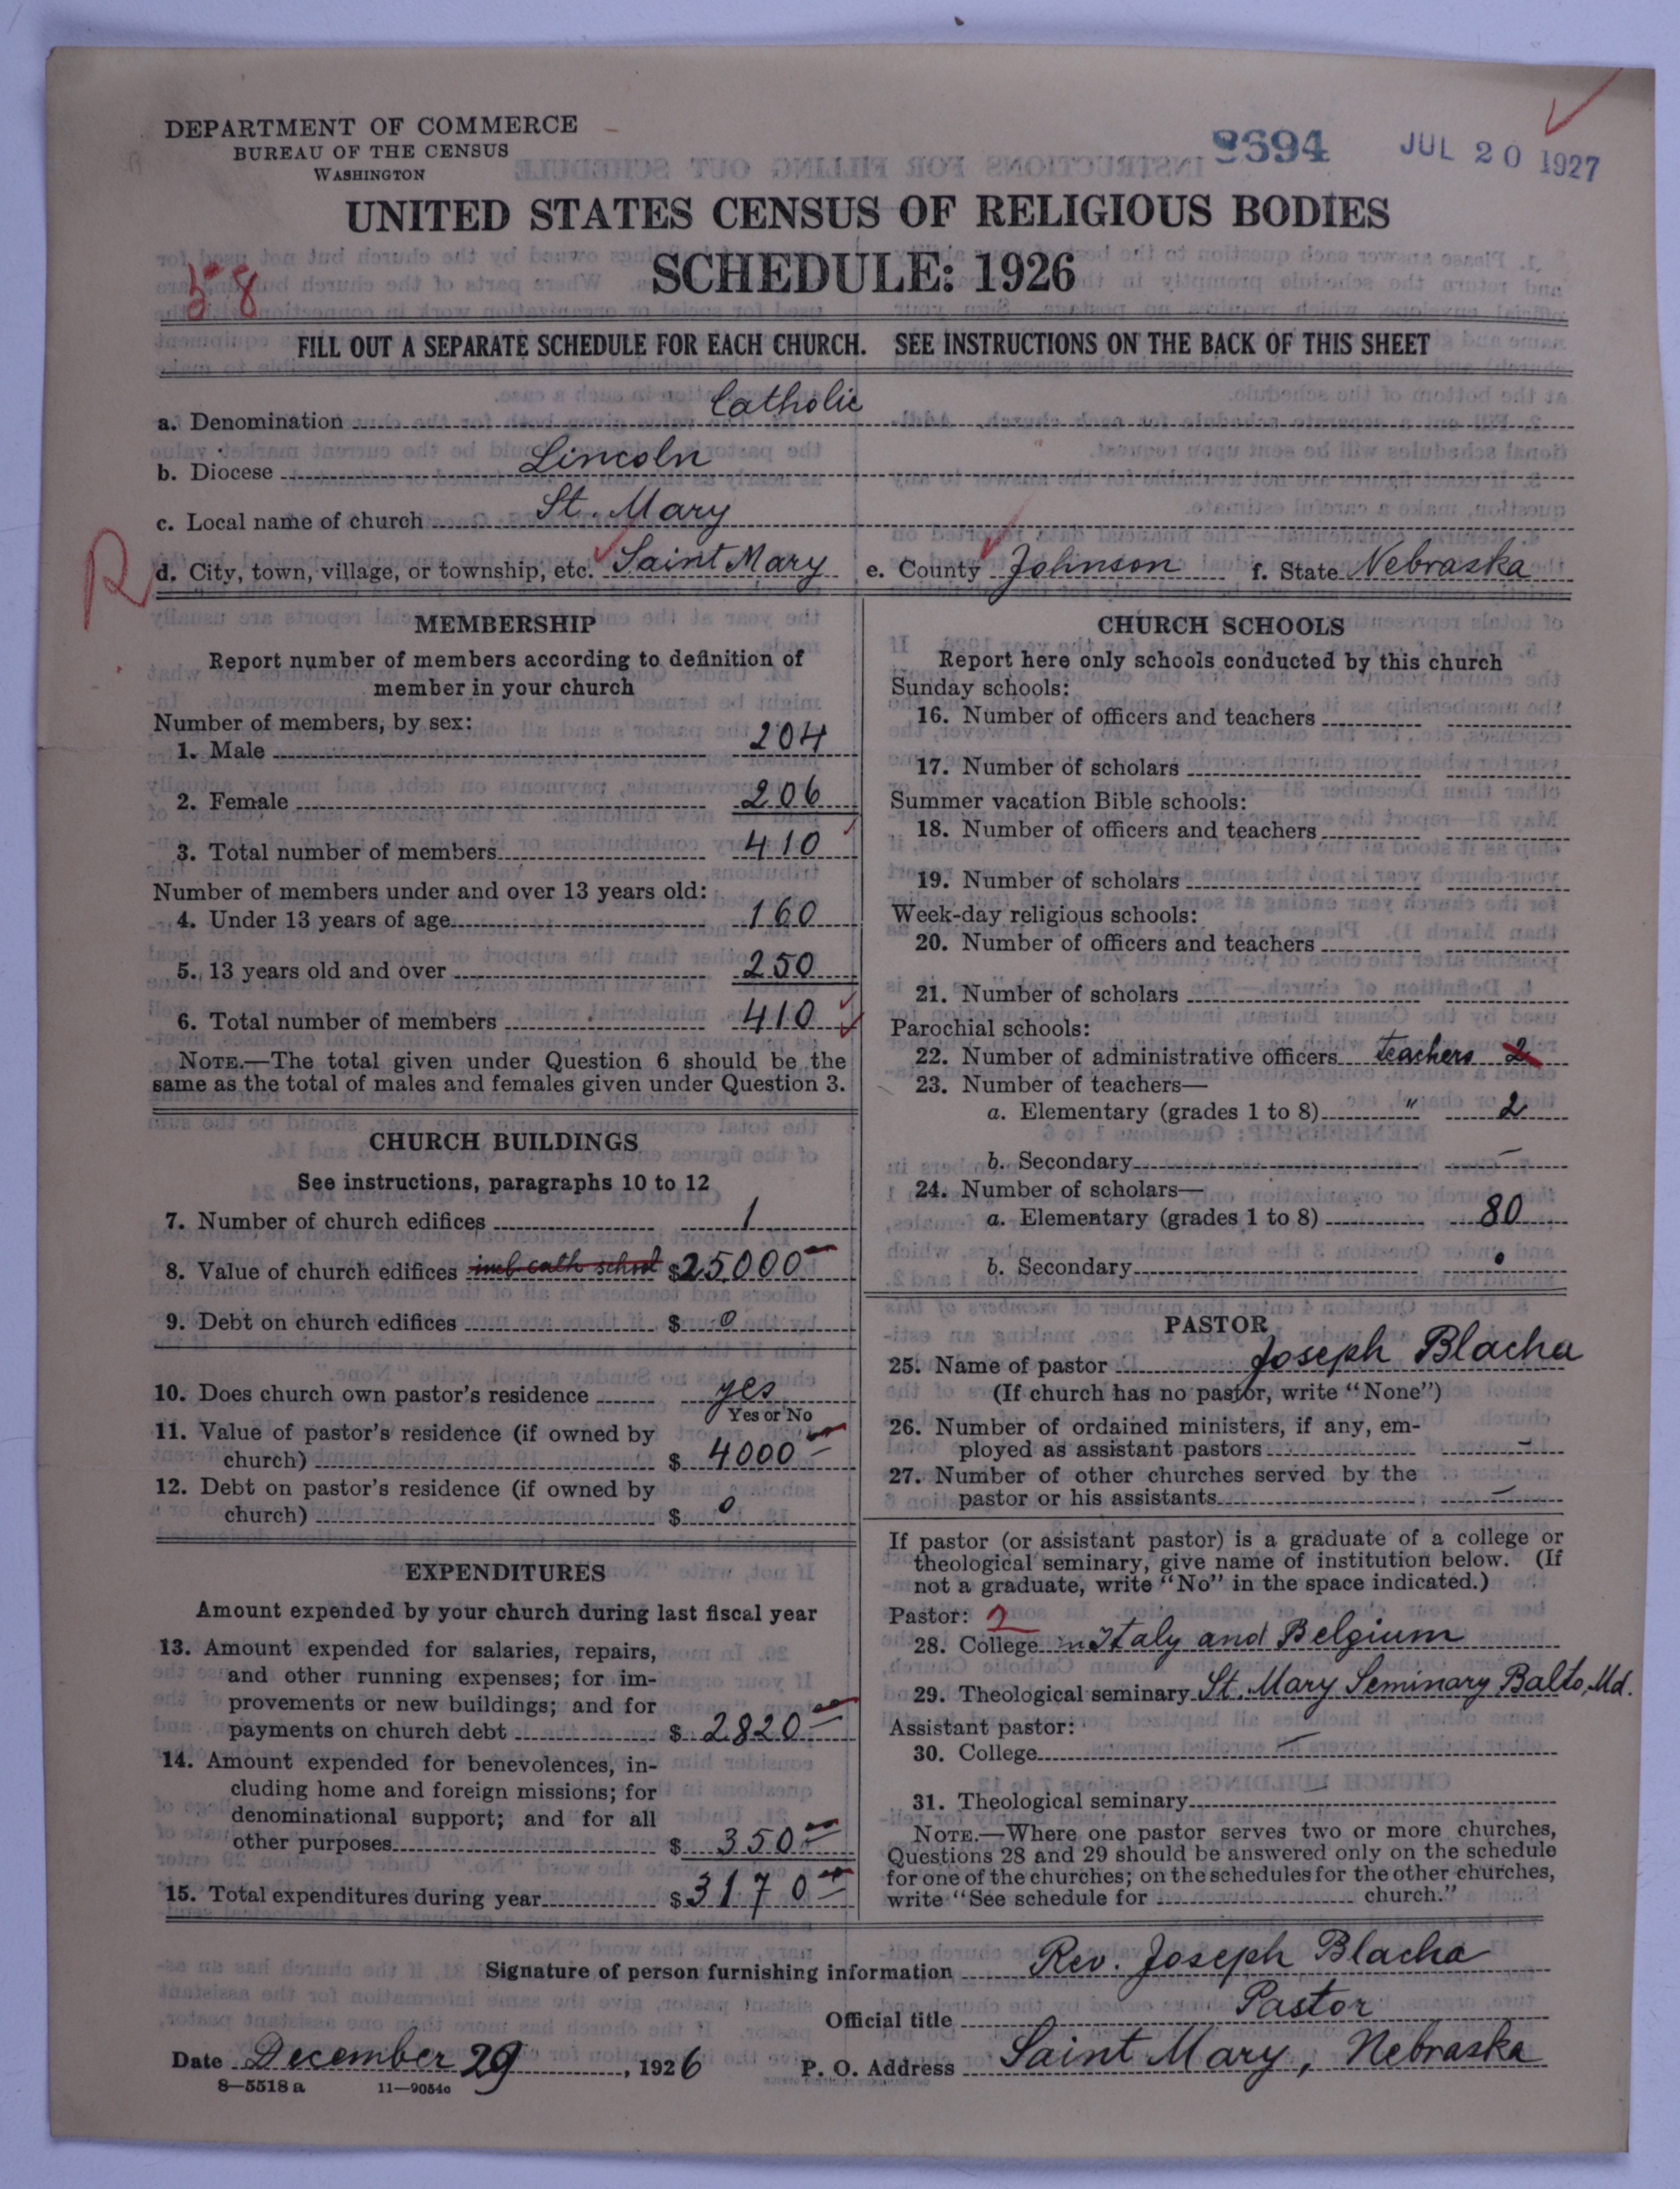 DEPARTMENT OF COMMERCE
BUREAU OF THE CENSUS
WASHINGTON
8694 JUL 20 1927
UNITED STATES CENSUS OF RELIGIOUS BODIES
SCHEDULE: 1926
58
FILL OUT A SEPARATE SCHEDULE FOR EACH CHURCH. SEE INSTRUCTIONS ON THE BACK OF THIS SHEET
a. Denomination Catholic
b. Diocese Lincoln
c. Local name of church St. Mary
R
d. City, town, village, or township, etc. Saint Mary e. County Johnson f. State Nebraska
MEMBERSHIP
Report number of members according to definition of
member in your church
Number of members, by sex:
1. Male 204
2. Female 206
3. Total number of members 410
Number of members under and over 13 years old:
4. Under 13 years of age 160
5. 13 years old and over 250
6. Total number of members 410
NOTE.—The total given under Question 6 should be the
same as the total of males and females given under Question 3.
CHURCH BUILDINGS
See instructions, paragraphs 10 to 12
7. Number of church edifices 1
8. Value of church edifices incl. cath school $25000—
9. Debt on church edifices $ 0
10. Does church own pastor's residence yes
Yes or No
11. Value of pastor's residence (if owned by
church) $ 4000—
12. Debt on pastor's residence (if owned by
church) $ 0
EXPENDITURES
Amount expended by your church during last fiscal year
13. Amount expended for salaries, repairs,
and other running expenses; for im-
provements or new buildings; and for
payments on church debt $ 2820—
14. Amount expended for benevolences, in-
cluding home and foreign missions; for
denominational support; and for all
other purposes $ 350—
15. Total expenditures during year $ 3170—
CHURCH SCHOOLS
Report here only schools conducted by this church
Sunday schools:
16. Number of officers and teachers
17. Number of scholars
Summer vacation Bible schools:
18. Number of officers and teachers
19. Number of scholars
Week-day religious schools:
20. Number of officers and teachers
21. Number of scholars
Parochial schools:
22. Number of administrative officers teachers 2
23. Number of teachers—
a. Elementary (grades 1 to 8) " 2
b. Secondary —
24. Number of scholars—
a. Elementary (grades 1 to 8) 80
b. Secondary
PASTOR
25. Name of pastor Joseph Blacha
(If church has no pastor, write "None")
26. Number of ordained ministers, if any, em-
ployed as assistant pastors —
27. Number of other churches served by the
pastor or his assistants —
If pastor (or assistant pastor) is a graduate of a college or
theological seminary, give name of institution below. (If
not a graduate, write "No" in the space indicated.)
Pastor: 2
28. College in Italy and Belgium
29. Theological seminary St. Mary Seminary Balto, Md.
Assistant pastor:
30. College —
31. Theological seminary —
NOTE.—Where one pastor serves two or more churches,
Questions 28 and 29 should be answered only on the schedule
for one of the churches; on the schedules for the other churches,
write "See schedule for church."
Signature of person furnishing information Rev. Joseph Blacha
Official title Pastor
Date December 29, 1926 P. O. Address Saint Mary, Nebraska
8—5518 a 11—9054c